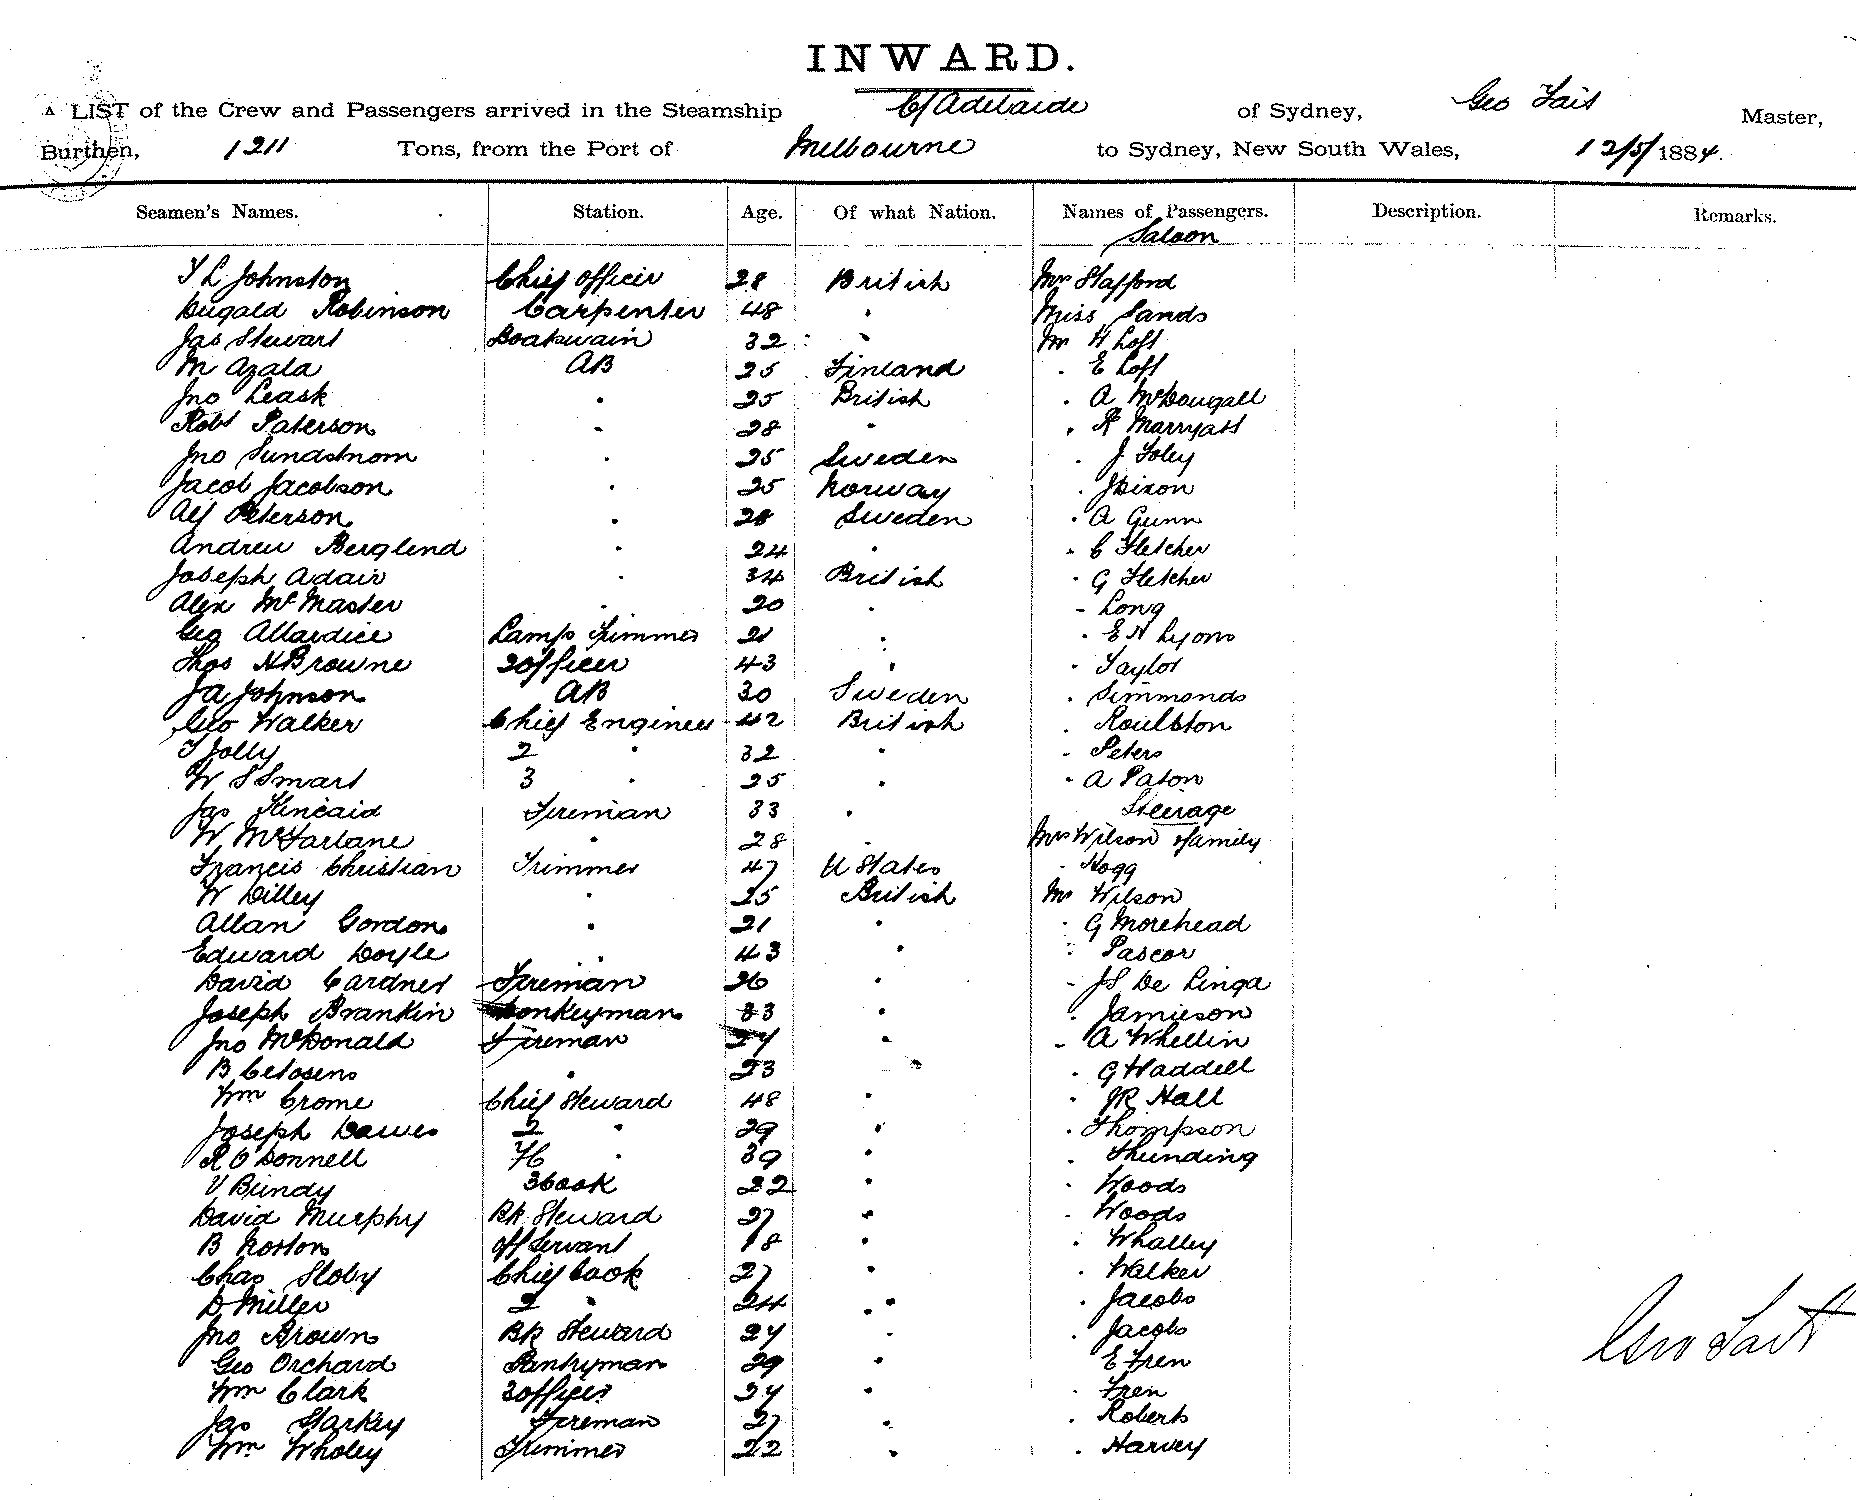 INWARD.
A LIST of the Crew and Passengers arrived in the Steamship C/Adelaide of Sydney, Geo Tait Master,
Burthen, 1211 Tons, from the Port of Melbourne to Sydney, New South Wales, 12/5/1884.
Seamen's Names. Station. Age. Of what Nation. Names of Passengers. Description. Remarks.
Saloon
Johnston Chief Officer 28 British Mr Stafford
Dugald Robinson Carpenter 48 " Miss Sands
Jas Stewart Boatswain 32 " Mr H Loft
M Azala AB 25 Finland " E Loft
Jno Leask " 25 British " A McDougall
Robt Paterson " 28 " " R Marryatt
Jno Sundstrom " 25 Sweden " J Foley
Jacob Jacobson " 25 Norway " J Dixon
Alf Peterson " 28 Sweden " A Gunn
Andrew Berglend " 24 " " C Fletcher
Joseph Adair " 34 British " G Fletcher
Alex McMaster " 20 " " Long
Geo Allardice Lamp Trimmer 21 " " E H Lyons
Thos H Browne 2 officer 43 " " Taylor
Ja Johnson AB 30 Sweden " Simmonds
Geo Walker Chief Engineer 42 British " Roulston
T Jolly 2 " 32 " " Peters
W S Smart 3 " 25 " " A Paton
Jas Kincaid Fireman 33 " Steerage
W McFarlane " 28 " Mrs Wilson & family
Francis Christian Trimmer 47 U States " Hogg
W Dilley " 25 British Mr Wilson
Allan Gordon " 21 " " G Morehead
Edward Doyle " 43 " " Pascoe
David Gardner Fireman 26 " " JS De Linga
Joseph Brankin Donkeyman 33 " " Jamieson
Jno McDonald Fireman 24 " " A Whellin
B " 23 " " G Waddell
Wm Crome Chief Steward 48 " " JR Hall
Joseph Dawes 2 " 29 " " Thompson
R O Donnell " 39 " " Thunding
V Bundy 3 Cook 22 " " Woods
David Murphy BR Steward 27 " " Woods
B Norton Off Servant 18 " " Whalley
Chas Sloby Chief Cook 27 " " Walker
D Miller 2 " 24 " " Jacobs
Jno Brown BR Steward 24 " " Jacobs
Geo Orchard Pantryman 29 " " E Fren
Wm Clark 3 officer 24 " " Fren
Jas Starkey Fireman 27 " " Roberts
Wm Wholey Trimmer 22 " " Harvey
Geo Tait